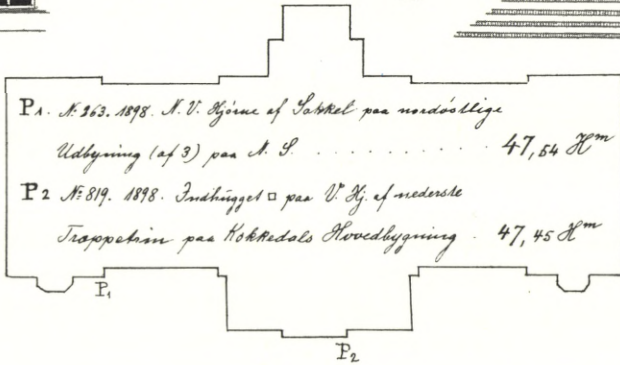 P1. № 263. 1898. N. V. Hjörne af Sokkel paa nordöstlige
Udbyning (af 3) paa N. S. . . . . . . . . . . 47,54 Hm
P2 № 819. 1898. Indhugget □ paa V. Hj. af nederste
Trappetrin paa Kokkedals Hovedbygning . 47,45 Hm
P1
P2